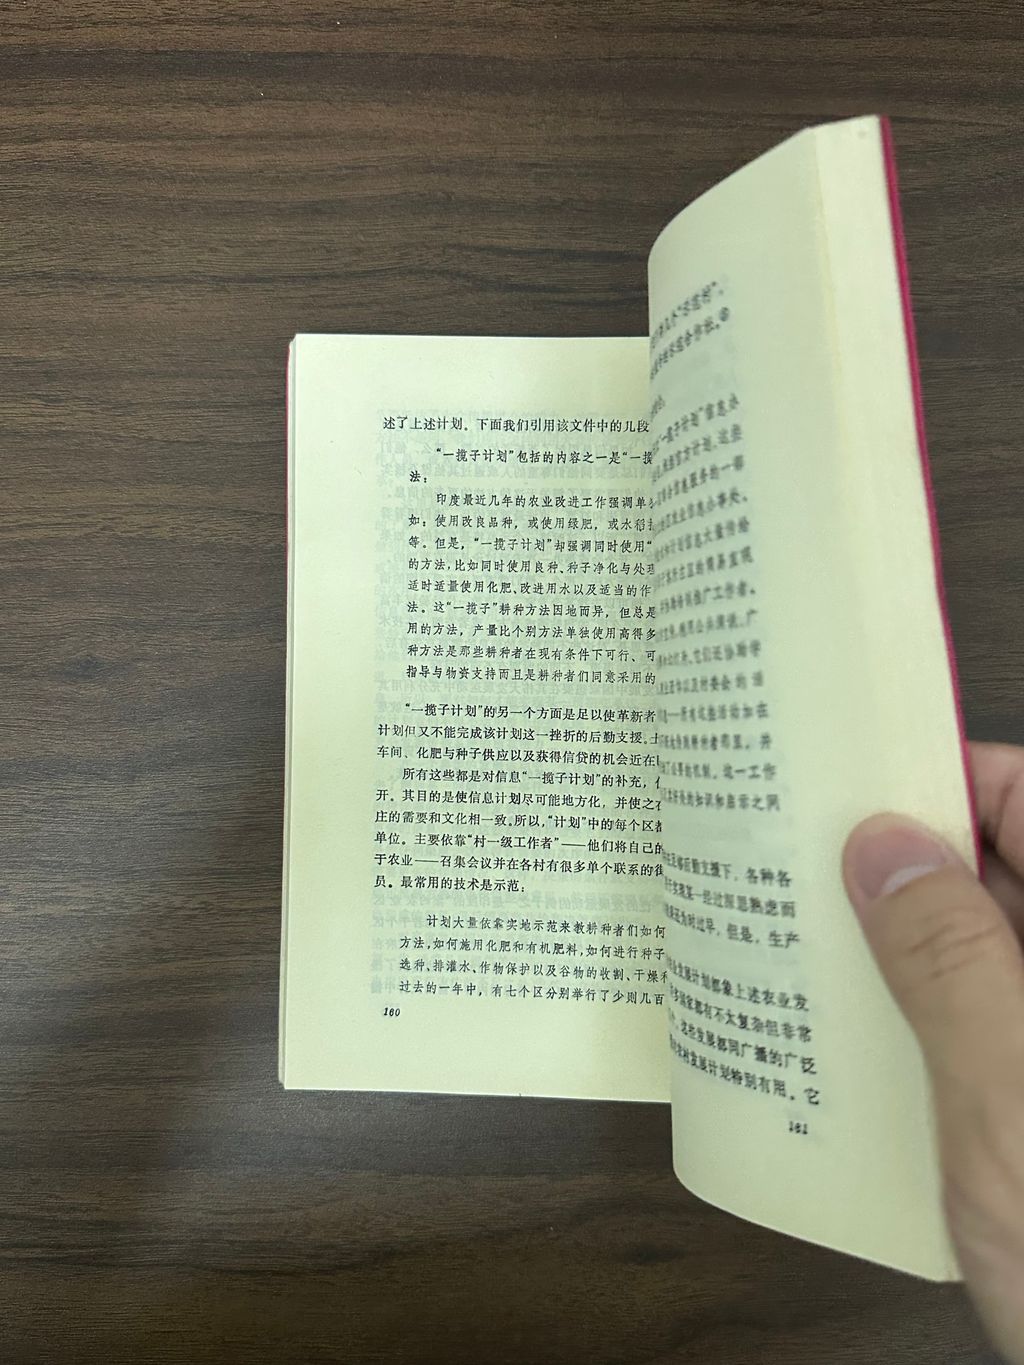 述了上述计划。下面我们引用该文件中的几段
“一揽子计划”包括的内容之一是“一揽
法：
印度最近几年的农业改进工作强调单
如：使用改良品种，或使用绿肥，或水稻
等。但是，“一揽子计划”却强调同时使用“
的方法，比如同时使用良种、种子净化与处理
适时适量使用化肥、改进用水以及适当的作
法。这“一揽子”耕种方法因地而异，但总是
用的方法，产量比个别方法单独使用高得多
种方法是那些耕种者在现有条件下可行、可
指导与物资支持而且是耕种者们同意采用的
“一揽子计划”的另一个方面是足以使革新者
计划但又不能完成该计划这一挫折的后勤支援。
车间、化肥与种子供应以及获得信贷的机会近在
所有这些都是对信息“一揽子计划”的补充，
开。其目的是使信息计划尽可能地方化，并使之
庄的需要和文化相一致。所以，“计划”中的每个区
单位。主要依靠“村一级工作者”——他们将自己的
于农业——召集会议并在各村有很多单个联系的
员。最常用的技术是示范：
计划大量依靠实地示范来教耕种者们如何
方法，如何施用化肥和有机肥料，如何进行种子
选种、排灌水、作物保护以及谷物的收割、干燥
过去的一年中，有七个区分别举行了少则几百
160
一揽子计划”信息办
官方计划。这些
信息服务的一部
农业信息办事处。
计划信息大量传给
推广工作者。
利用公共演说、广
它们还协助学
以及村委会的活
所有这些活动加在
耕种者那里。并
的机制。这一工作
的知识和启示之间
足够后勤支援下，各种各
某一经过深思熟虑而
还为时过早，但是，生产
业发展计划都象上述农业发
多国家都有不太复杂但非常
这些发展都同广播的广泛
农村发展计划特别有用。它
161